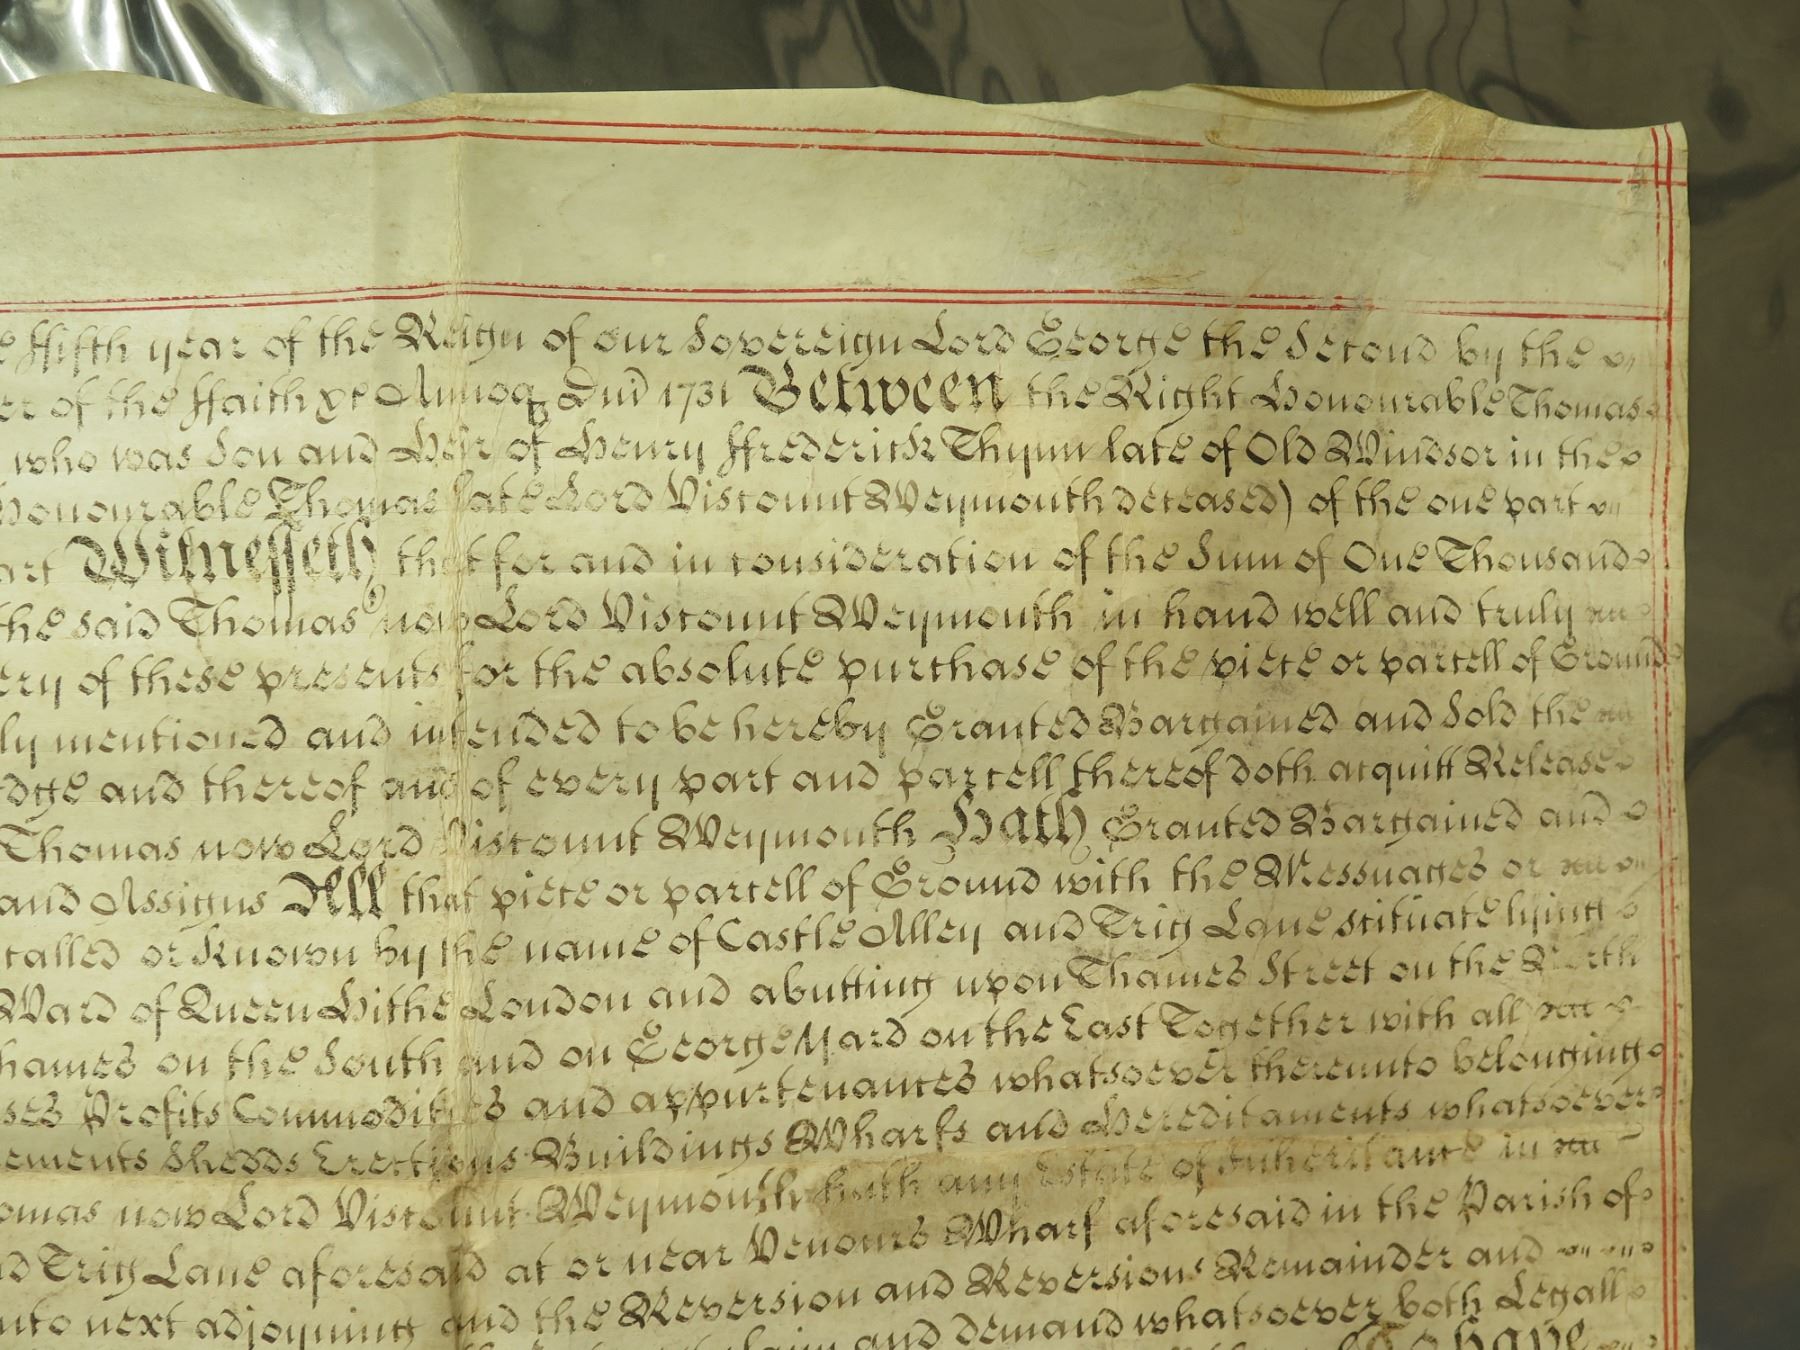 e ffifth year of the Reign of our Sovereign Lord George the Second by the
er of the ffaith &c Annoq Dni 1731 Between the Right Honourable Thomas
who was Son and Heir of Henry ffrederick Thynn late of Old Windsor in the
Honourable Thomas late Lord Viscount Weymouth deceased) of the one part
art Witnesseth that for and in consideration of the Sum of One Thousand
the said Thomas now Lord Viscount Weymouth in hand well and truly
ery of these presents for the absolute purchase of the piece or parcell of Ground
ly mentioned and intended to be hereby Granted Bargained and Sold the
dge and thereof and of every part and parcell thereof doth acquitt Release
Thomas now Lord Viscount Weymouth Hath Granted Bargained and
and Assigns All that piece or parcell of Ground with the Messuages or
called or known by the name of Castle Alley and Trig Lane scituate lying
Ward of Queen Hithe London and abutting upon Thames Street on the North
hames on the South and on George Yard on the East Together with all
ses Profits Commodities and appurtenances whatsoever thereunto belonging
ements Shedds Erections Buildings Wharfs and Hereditaments whatsoever
omas now Lord Viscount Weymouth hath any Estate of Inheritance in
nd Trig Lane aforesaid at or near Venours Wharf aforesaid in the Parish of
nto next adjoyning and the Reversion and Reversions Remainder and
claim and demand whatsoever both Legall
To have